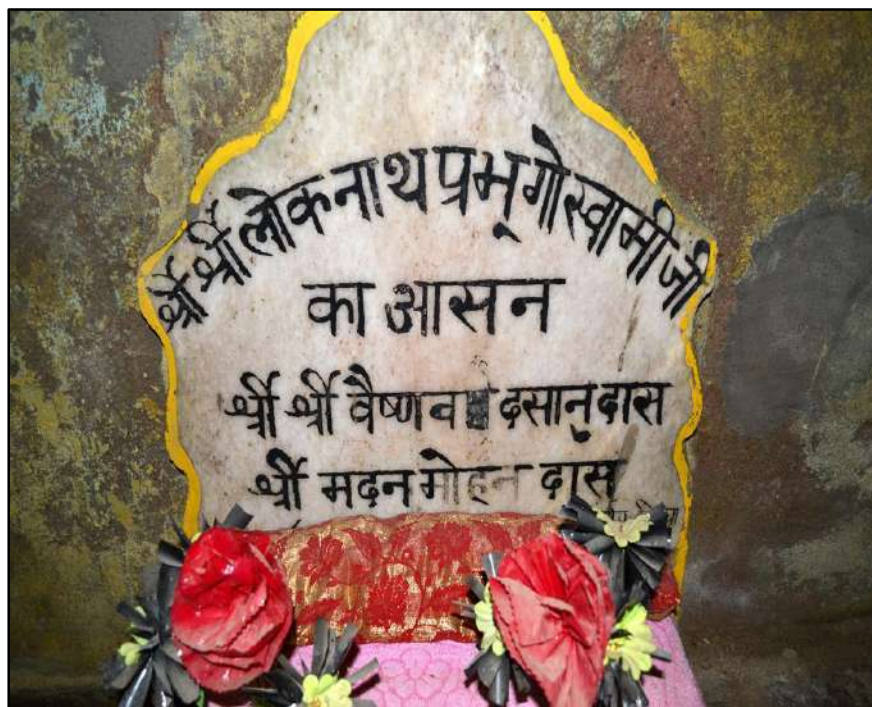 श्री श्री लोकनाथ प्रभू गोस्वामी जी
का आसन
श्री श्री वैष्णव दसानुदास
श्री मदन मोहन दास